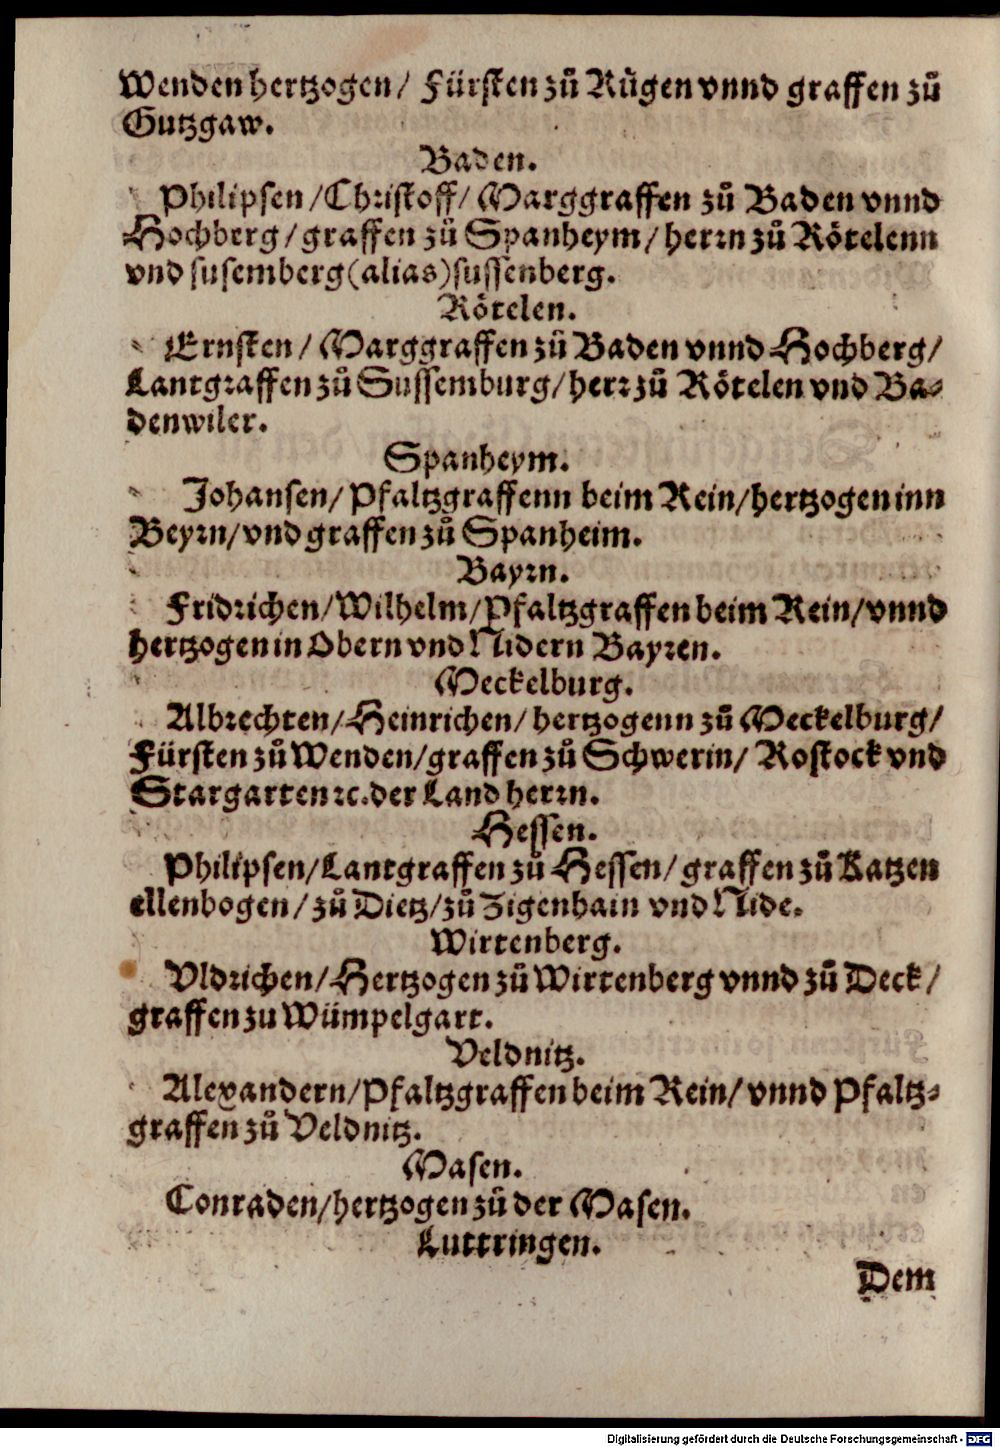 Wenden hertzogen/ Fürsten zů Rügen vnnd graffen zů
Gutzgaw.
Baden.
Philipsen/Christoff/ Marggraffen zů Baden vnnd
Hochberg/graffen zů Spanheym/herrn zů Rötelenn
vnd susemberg(alias)sussenberg.
Rötelen.
Ernsten/ Marggraffen zů Baden vnnd Hochberg/
Lantgraffen zů Sussemburg/herr zů Rötelen vnd Ba-
denwiler.
Spanheym.
Johansen/ Pfaltzgraffenn beim Rein/hertzogen inn
Beyrn/vnd graffen zů Spanheim.
Bayrn.
Fridrichen/Wilhelm/Pfaltzgraffen beim Rein/vnnd
hertzogen in Obern vnd Nidern Bayren.
Meckelburg.
Albrechten/Heinrichen/ hertzogenn zů Meckelburg/
Fürsten zů Wenden/graffen zů Schwerin/ Rostock vnd
Stargarten ꝛc. der Land herrn.
Hessen.
Philipsen/Lantgraffen zů Hessen/ graffen zů Katzen
ellenbogen/ zů Dietz/zů Zigenhain vnd Nide.
Wirtenberg.
Vldrichen/Hertzogen zů Wirtenberg vnnd zů Deck/
graffen zu Wümpelgart.
Veldnitz.
Alexandern/Pfaltzgraffen beim Rein/ vnnd Pfaltz-
graffen zů Veldnitz.
Masen.
Conraden/hertzogen zů der Masen.
Luttringen.
Dem
Digitalisierung gefördert durch die Deutsche Forschungsgemeinschaft - DFG